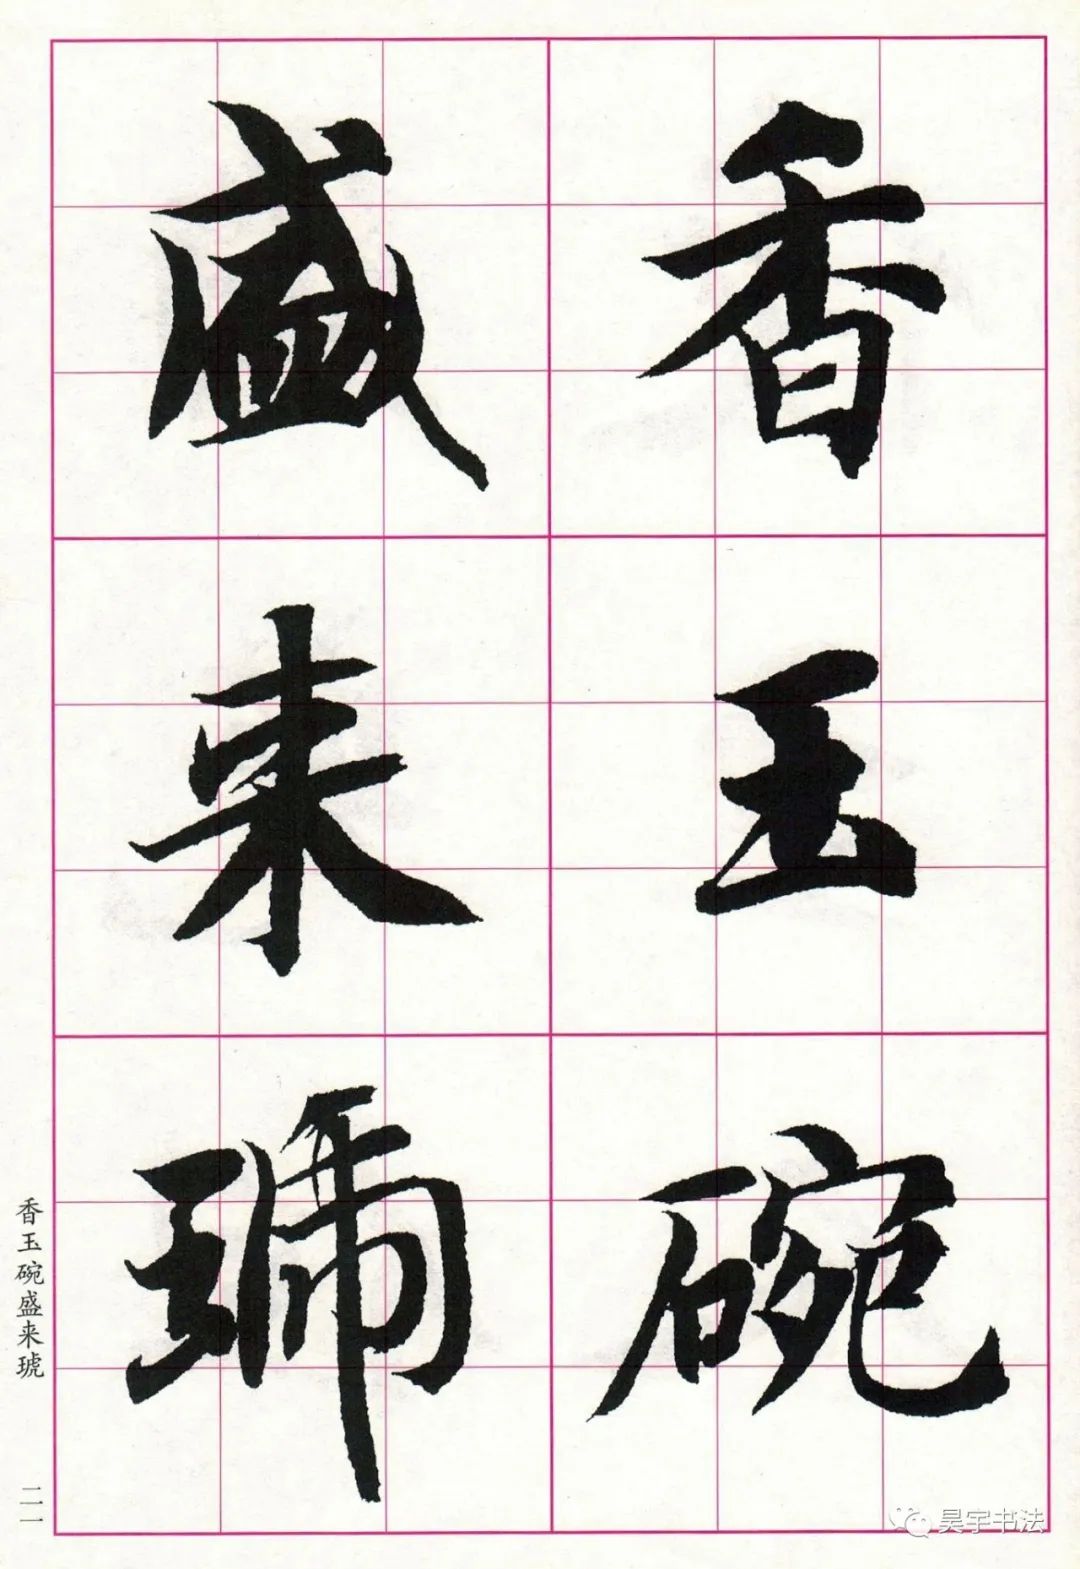 香玉碗
盛来琥
香玉碗盛来琥
二一
昊宇书法